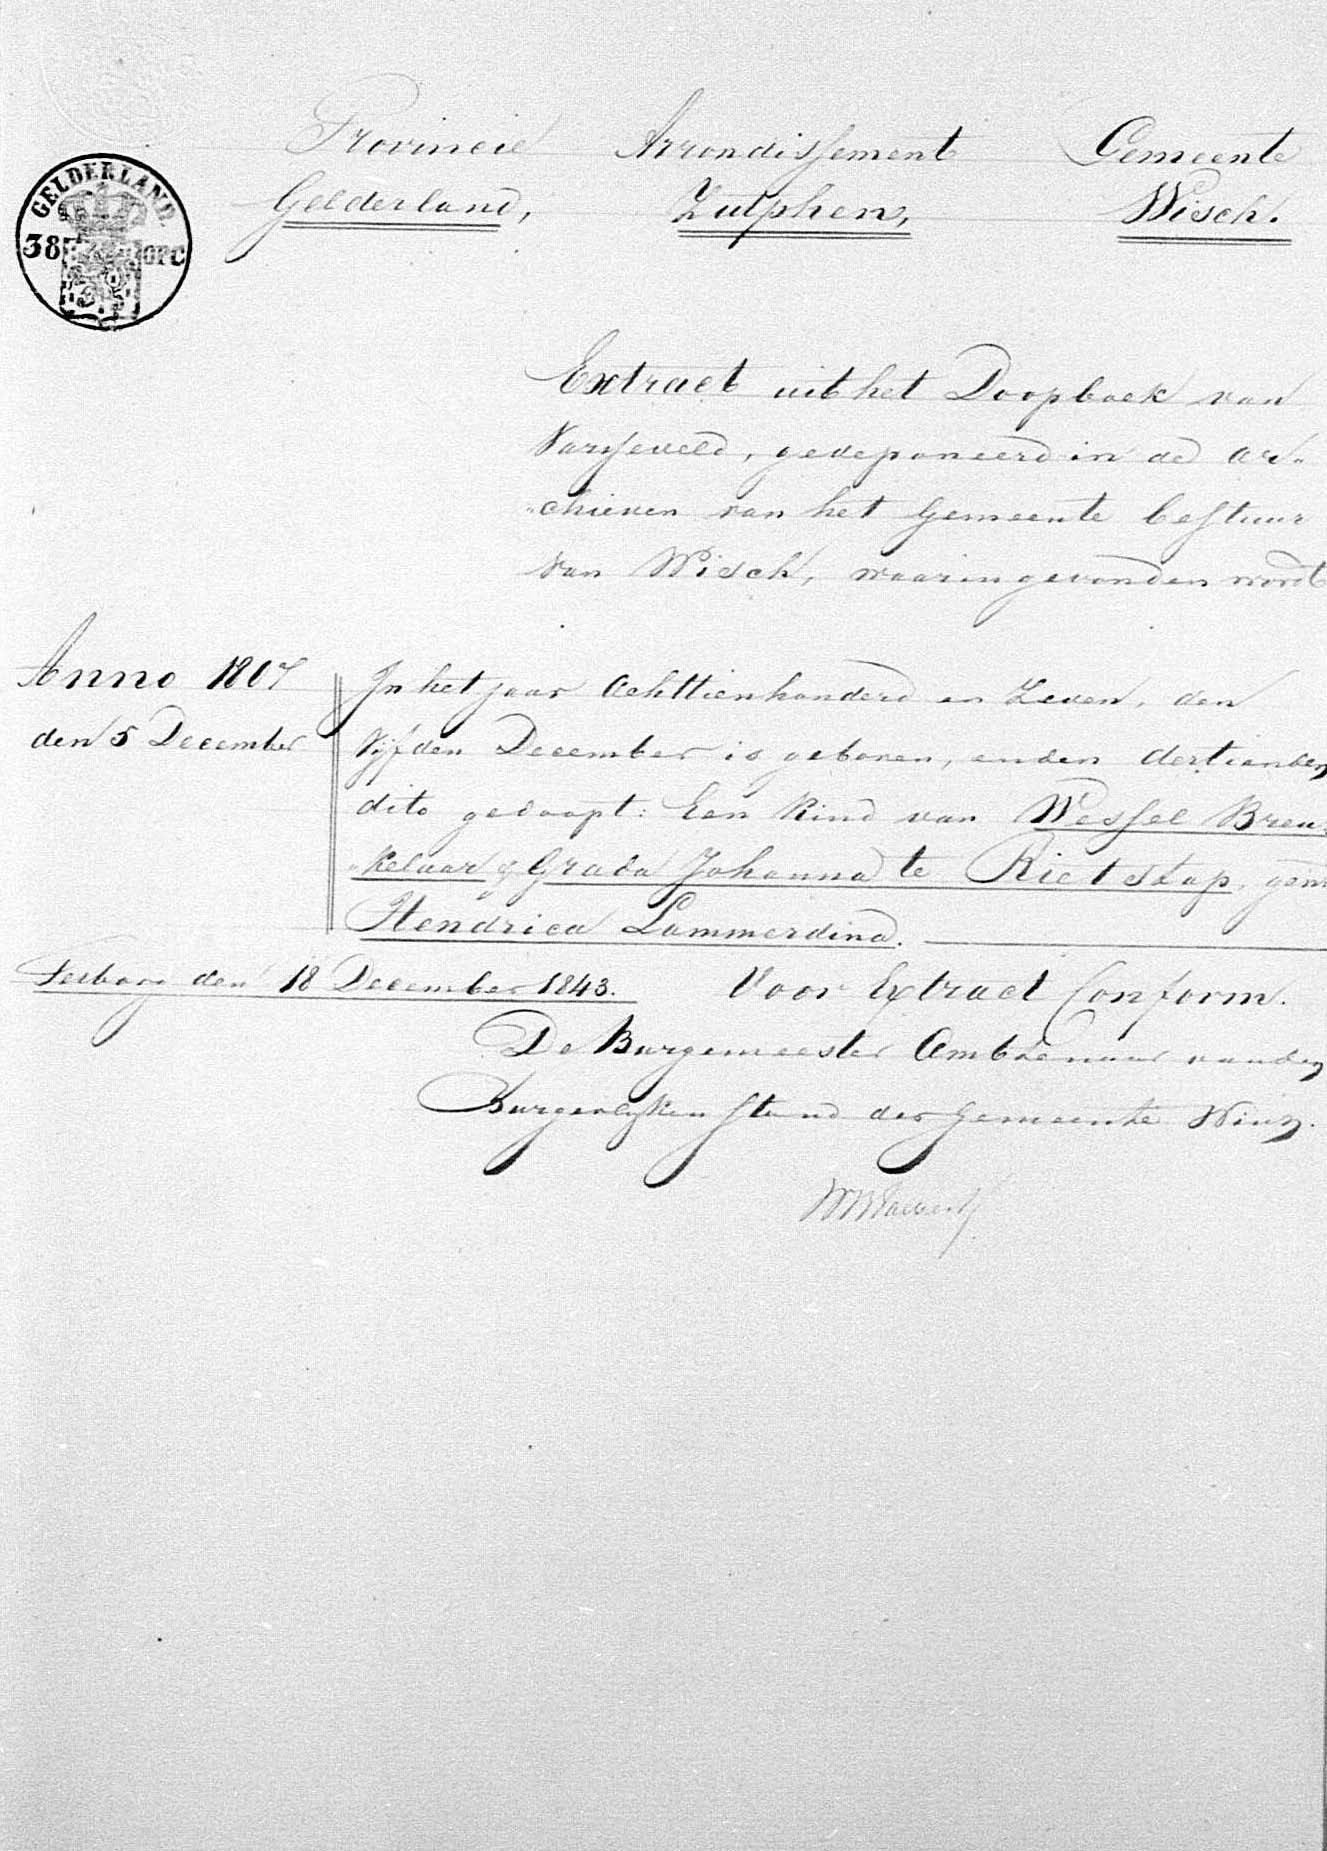 Provincie Arrondissement Gemeente
Gelderland, Zutphen, Wisch.
GELDERLAND.
38 OPC
Extract uit het Doopboek van
Varsseveld, gedeponeerd in de ar„
„chieven van het Gemeente bestuur
van Wisch, waarin gevonden wordt
Anno 1807 In het jaar Achttienhonderd en Zeven, den
den 5 December Vijfden December is geboren, en den dertienden
dito gedoopt: Een Kind van Wessel Breu„
„kelaar & Grada Johanna te Rietstap, gent
Hendrica Lammerdina.
Terborg den 18 December 1843. Voor Extract Conform.
De Burgemeester Ambtenaar van den
Burgerlijken Stand der Gemeente